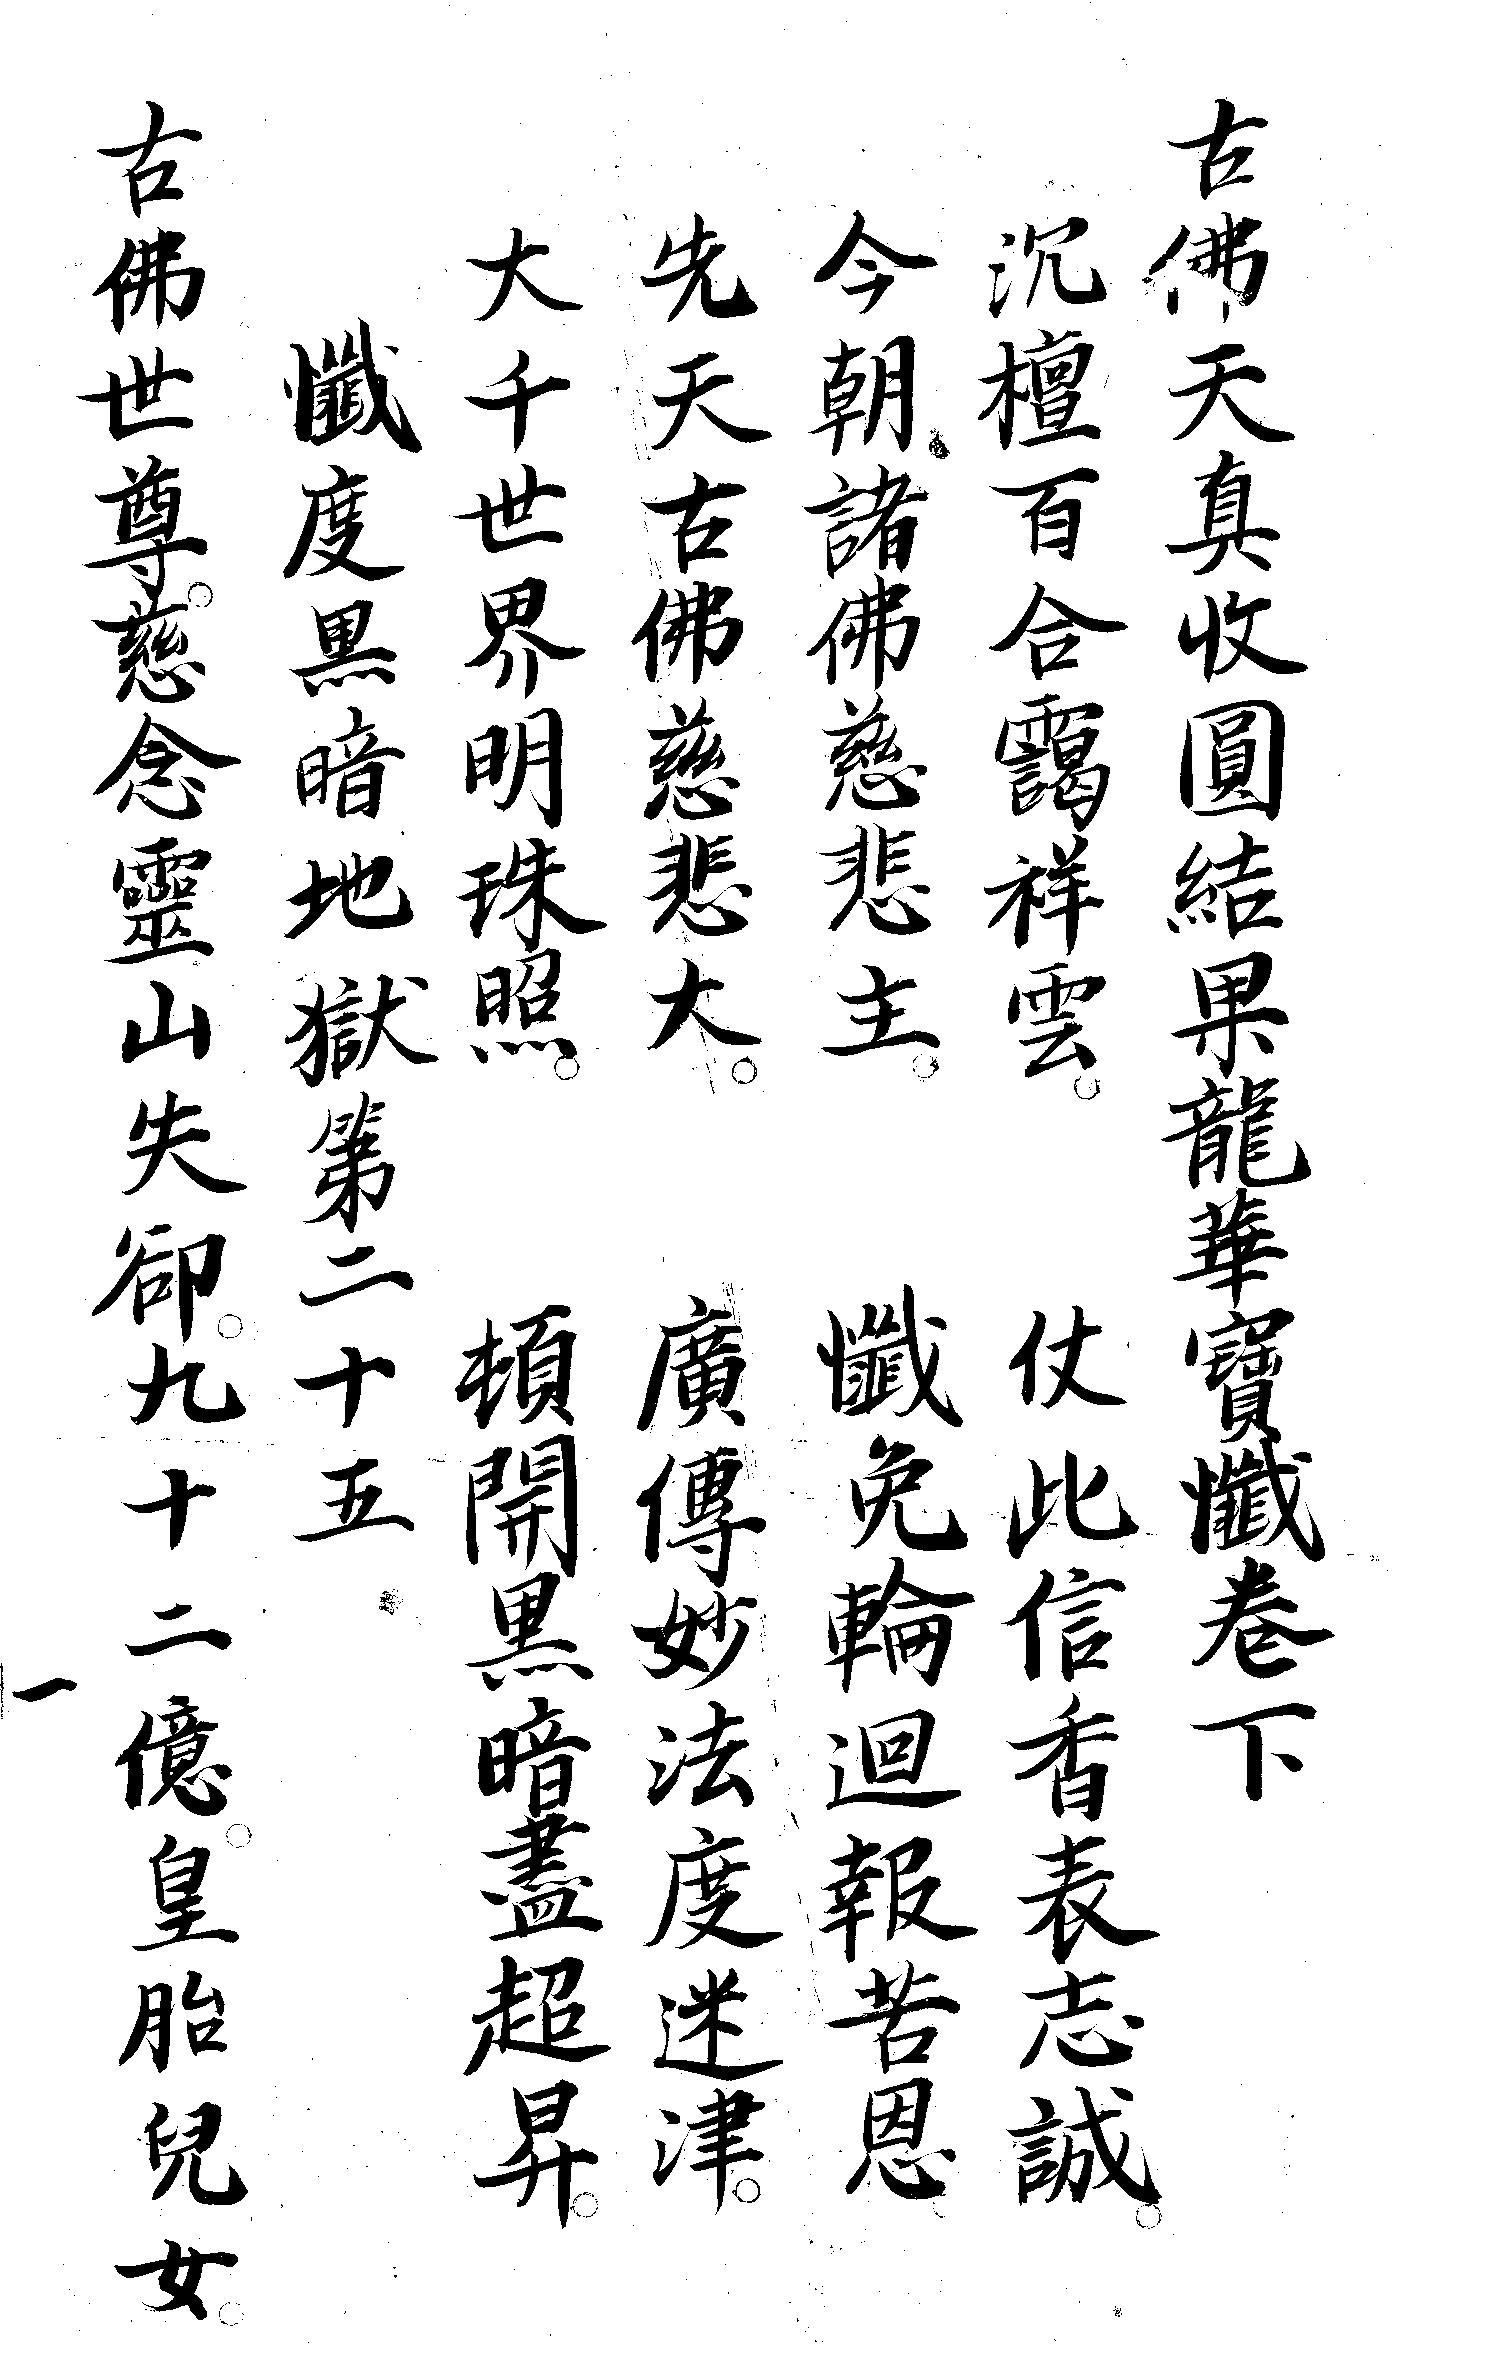 古佛天真收圓結果龍華寶懺卷下
沉檀百合靄祥雲。　仗此信香表志誠。
今朝諸佛慈悲主。　懺免輪迴報苦恩
先天古佛慈悲大。　廣傳妙法度迷津。
大千世界明珠照。　頓開黑暗盡超昇。
懺度黑暗地獄第二十五
古佛世尊。慈念靈山失卻。九十二億。皇胎兒女。
一